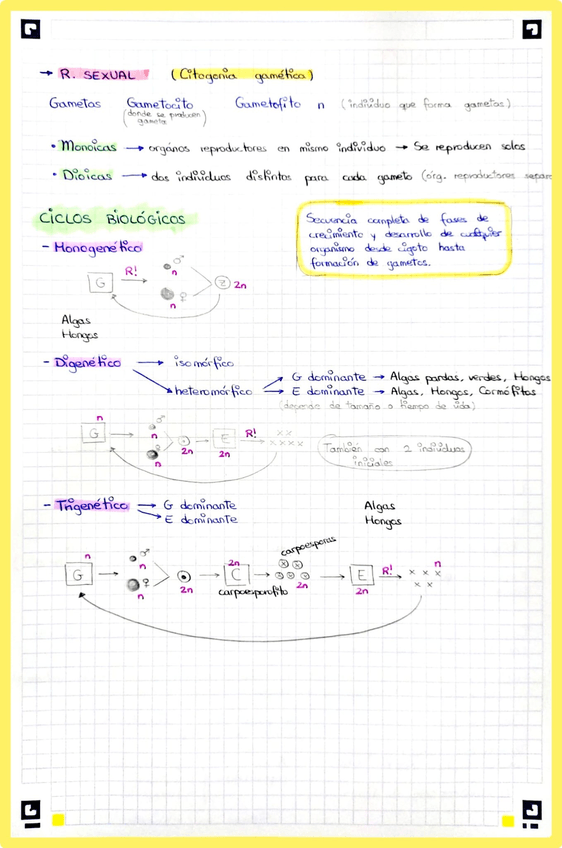 → R. SEXUAL (Citogonia gamética)
Gametos Gametocito Gametofito n (individuo que forma gametos)
(donde se producen
gametos)
• Monoicas → orgános reproductores en mismo individuo → Se reproducen solos
• Dioicas → dos individuos distintos para cada gameto (órg. reproductores separ
CICLOS BIOLÓGICOS
Secuencia completa de fases de
crecimiento y desarrollo de cualquier
organismo desde cigoto hasta
formación de gametos.
- Monogenético
G R! → ♂ n ♀ n 2n
Algas
Hongos
- Digenético → isomórfico
heteromórfico → G dominante → Algas pardas, verdes, Hongos
→ E dominante → Algas, Hongos, Cormófitos
(depende de tamaño o tiempo de vida)
n G → ♂ n ♀ n 2n → E 2n R! → x x
x x x x
También con 2 individuos
iniciales
- Trigenético → G dominante
→ E dominante
Algas
Hongos
n G → ♂ n ♀ n 2n → 2n C → carpoesporas 2n → E 2n R! → n x x x
x x
carpoesporofito